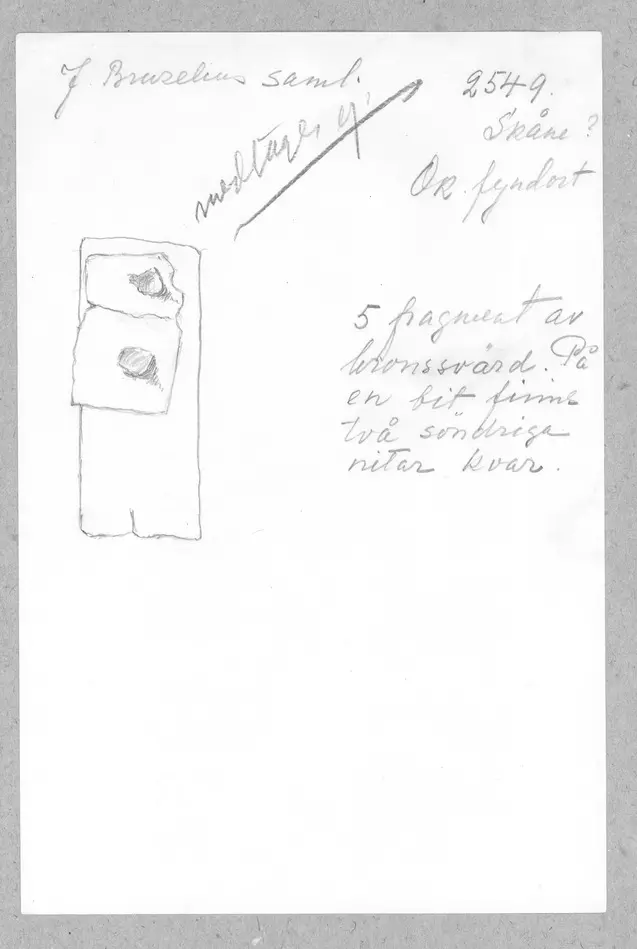 J Bruzelius saml.
2549.
Skåne?
Ok. fyndort
medtages ej.
5 fragment av
bronssvärd. På
en bit finns
två söndriga
nitar kvar.